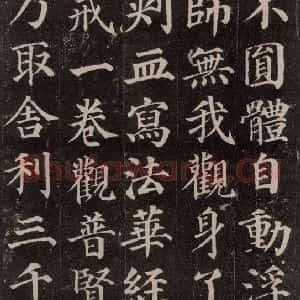 不圓體自動浮
師無我觀身了
刾血寫法華經
戒一卷觀普賢
乃取舍利三千